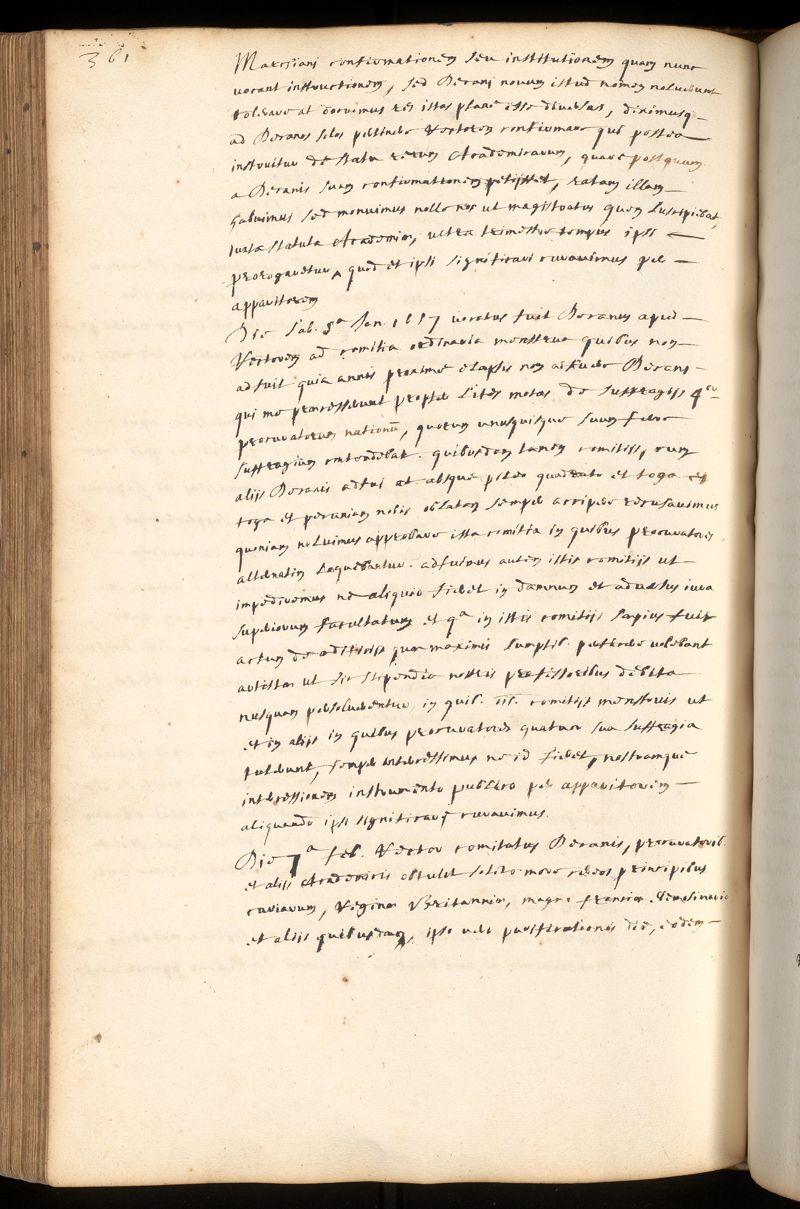 361
Marsiani confirmationem seu institutionem quam nunc
vocant instructionem, sed Decani novum istud nomen noluerunt
tolerare at docuimus res istas plane esse diversas, diximusq.
ad Decanos solos pertinere Rectorem confirmare qui postea
instruitur de statu rerum Academicarum, quare postquam
a Decanis suam confirmationem petijsset, ratam illam
habuimus sed monuimus nolle nos ut magistratus quem suscipiebat,
iuxta statuta Academiæ, ultra trimestre tempus ipsi
prorogaretur, quod et ipsi significari curavimus per
apparitorem
Die Sab. 8a Jan. 1657 vocatus fuit Decanus apud
Rectorem ad comitia ordinaria menstrua quibus non
adfuit quia annis proxime elapsis non adfuere Decani
qui me praecesserunt propter lites motas de suffragijs 4or
procuratorum nationū, quorum unusquisque suum fere
suffragium contendebat. quibusdam tamen comitijs, cum
alijs Decanis adfui at absque pileo quadrato et toga et
toga et pecuniam nobis oblatam semper accipere recusavimus
quoniam noluimus approbare ista comitia in quibus procuratores
alternatim loquebantur. adfuimus autem istis comitijs ut
impediremus ne aliquid fieret in damnum et adversus iura
superiorum facultatum et qa in istis comitijs sæpius fuit
actum de quam maximis sumptib.
ut sic stipendia nostris professoribus debita
nusquam persolverentur, in quib. comitijs menstruis ut
et in alijs in quibus procuratores quatuor sua suffragia
tulerunt, semper intercessimus ne id fieret, nostramque
intercessionem instrumento publico per apparitorem
aliquando ipsi significari curavimus.
Die 7a feb. Rector comitatus Decanis, procuratorib.
et alijs Academicis obtulit solito more cereos principibus
curiarum, Reginæ Britanniæ, magno franciæ Elemosinario
et alijs quibusdam, ipso vero purificationis die, eodem